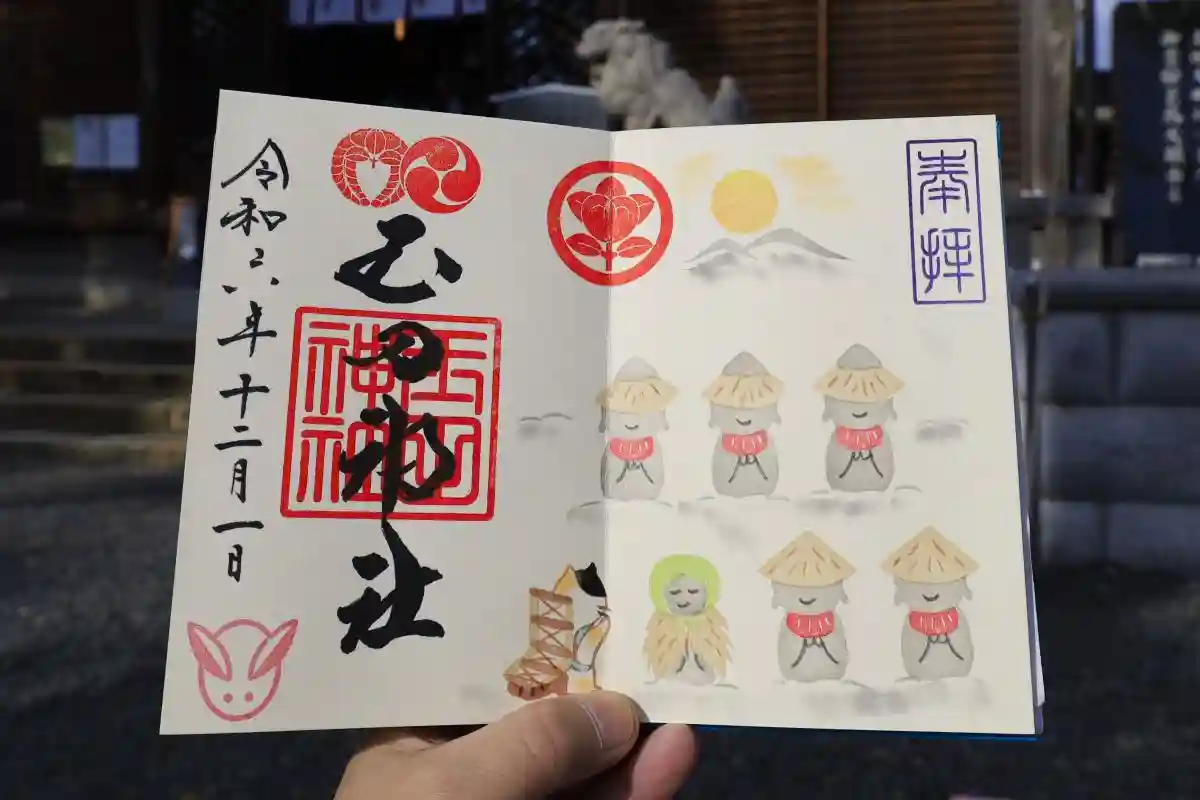 奉拝
玉田神社
玉田神社
令和六年十二月一日